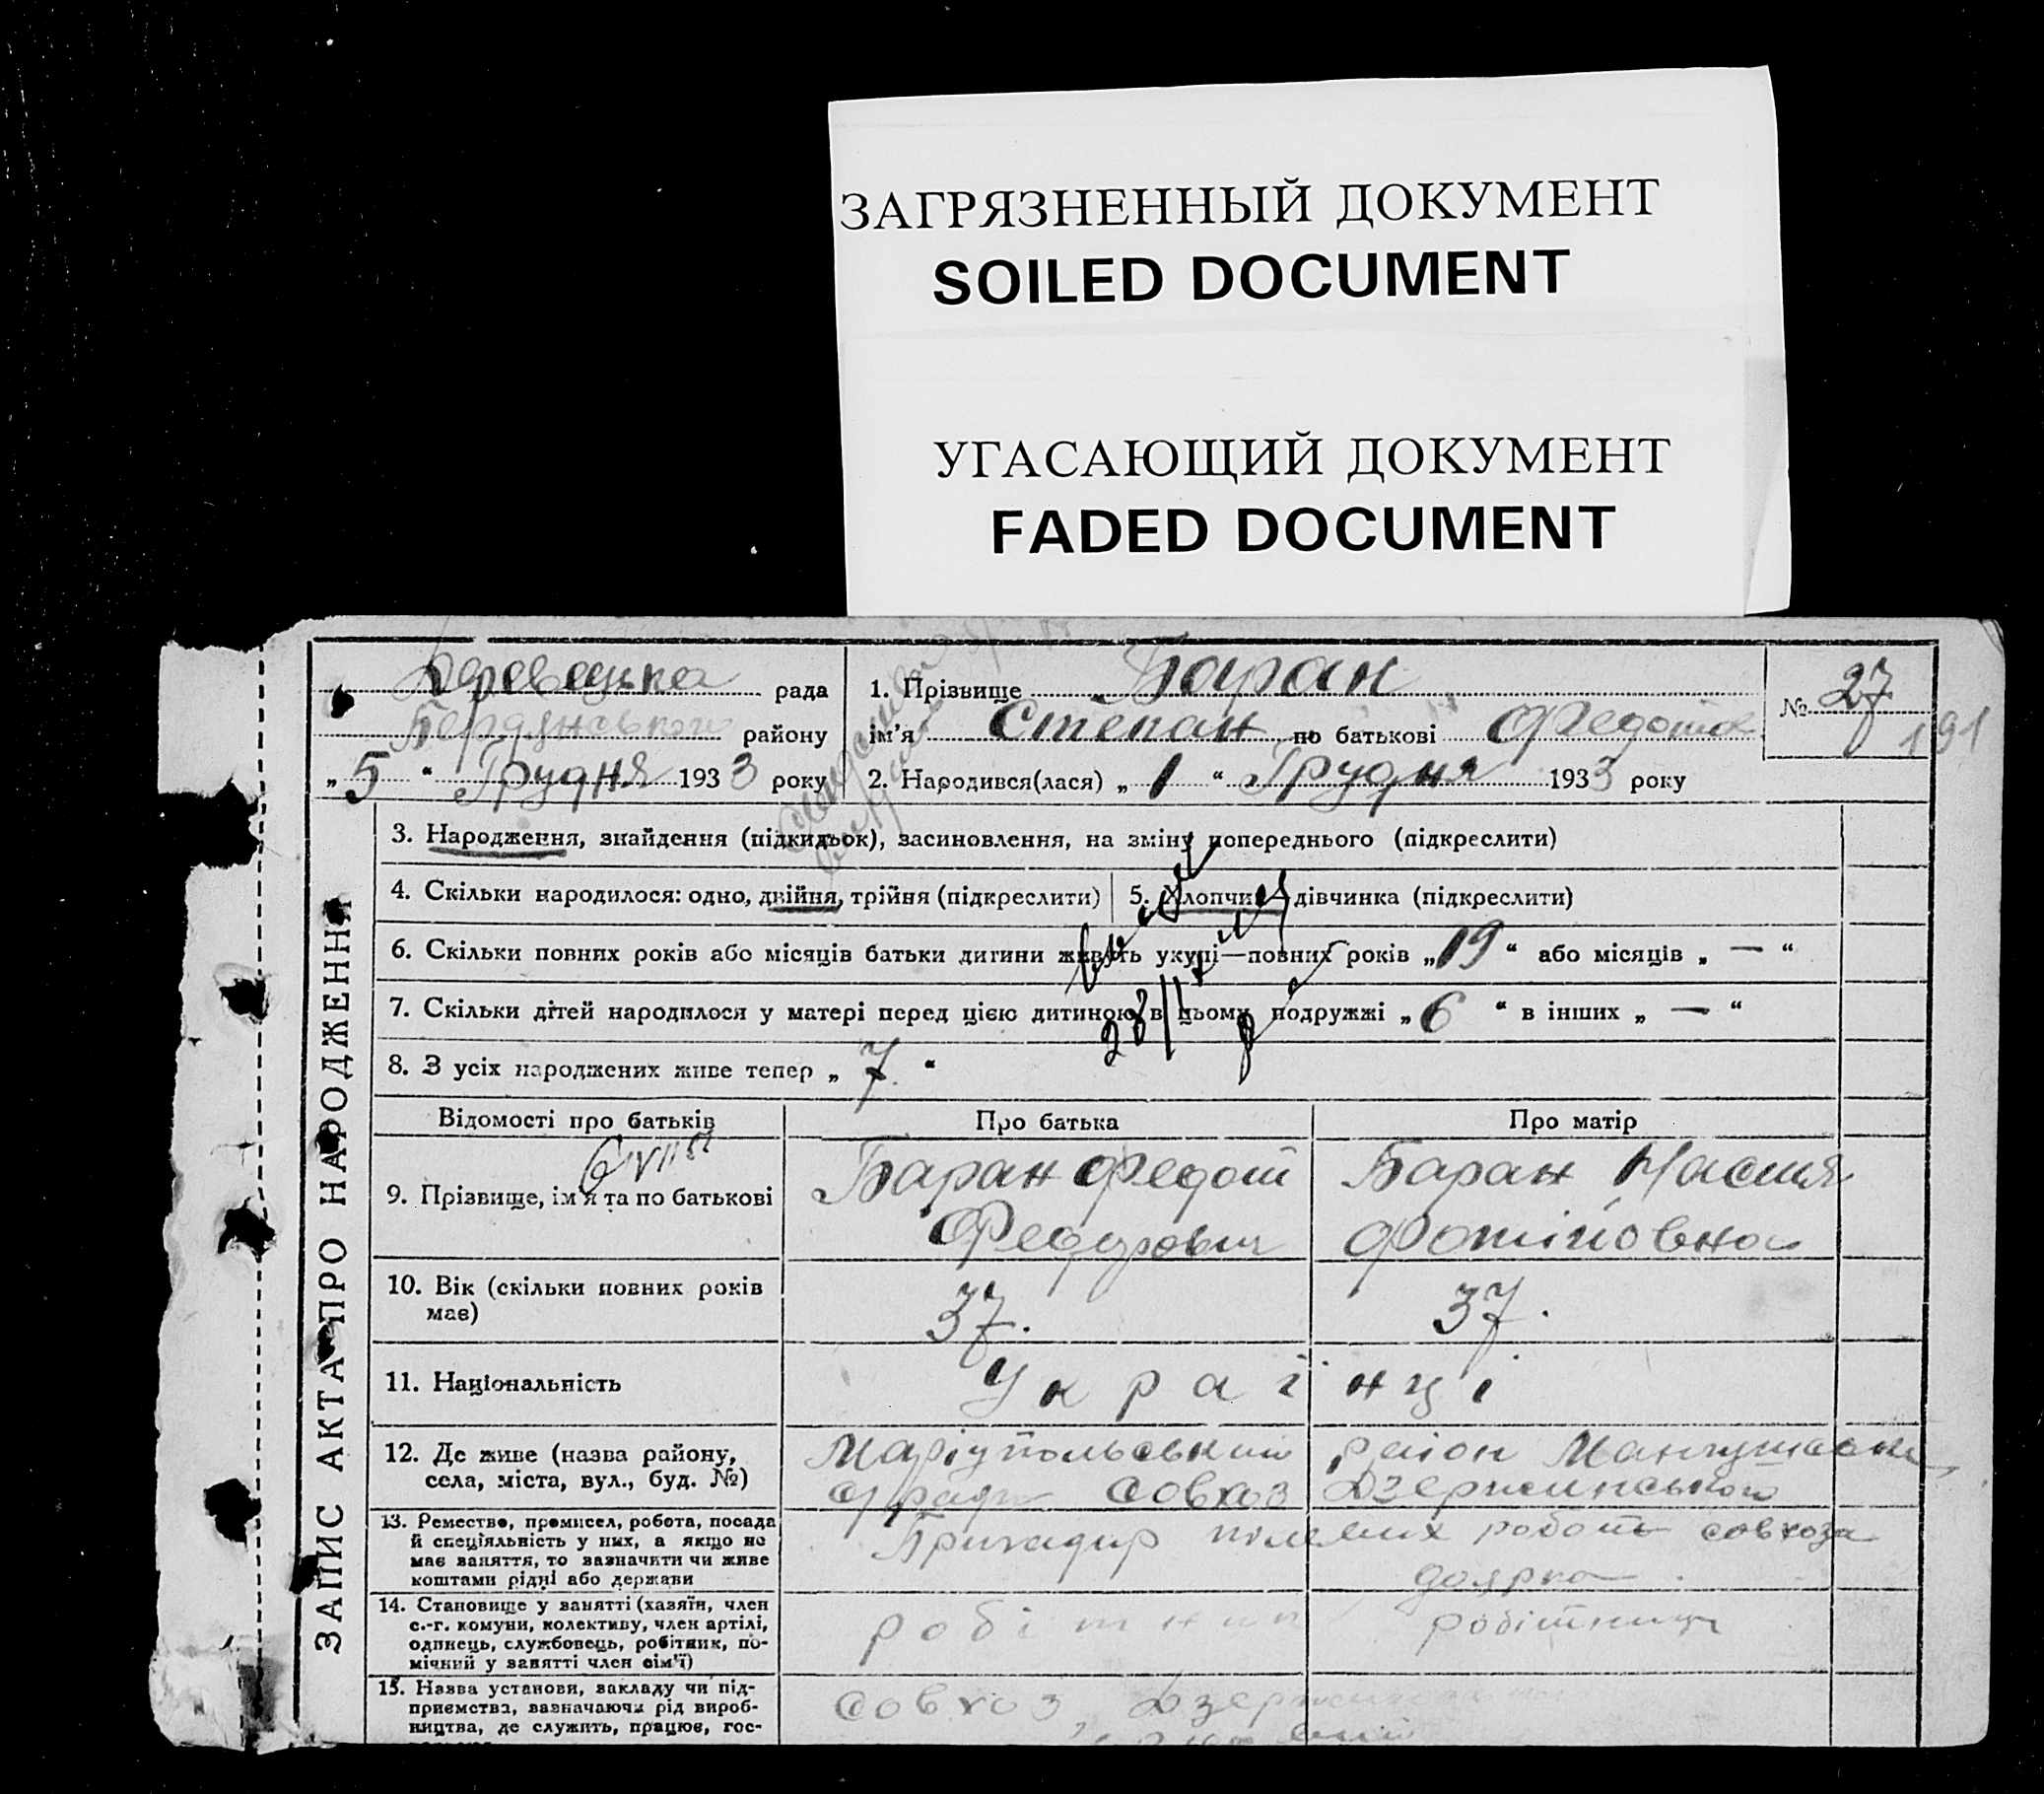 ЗАГРЯЗНЕННЫЙ ДОКУМЕНТ
SOILED DOCUMENT
УГАСАЮЩИЙ ДОКУМЕНТ
FADED DOCUMENT
рада
Бердянського району
„5“ Грудня 1933 року
1. Прізвище Баран
ім'я Степан по батькові Федотов
2. Народився(лася) „1“ Грудня 1933 року
№ 27
191
ЗАПИС АКТА ПРО НАРОДЖЕННЯ
3. Народження, знайдення (підкидьок), засиновлення, на зміну попереднього (підкреслити)
4. Скільки народилося: одно, двійня, трійня (підкреслити)
5. Хлопчик, дівчинка (підкреслити)
6. Скільки повних років або місяців батьки дитини живуть укупі—повних років „19“ або місяців „—“
7. Скільки дітей народилося у матері перед цією дитиною в цьому подружжі „6“ в інших „—“
8. З усіх народжених живе тепер „7“
Відомості про батьків
Про батька
Про матір
9. Прізвище, ім'я та по батькові
Баран Федот
Федорович
Баран Настя
Фотіїовна
10. Вік (скільки повних років
має)
37.
37.
11. Національність
Українці
12. Де живе (назва району,
села, міста, вул., буд. №)
Маріупольський район
совхоз Дзержинського
13. Ремество, промисел, робота, посада
й спеціяльність у них, а якщо не
має заняття, то зазначити чи живе
коштами рідні або держави
Бригадир полевих робот совхоза
доярка
14. Становище у занятті (хазяїн, член
с.-г. комуни, колективу, член артілі,
одинець, службовець, робітник, по-
мічний у занятті член сім'ї)
робітник
робітниця
15. Назва установи, закладу чи під-
приємства, зазначаючи рід вироб-
ництва, де служить, працює, гос-
совхоз,